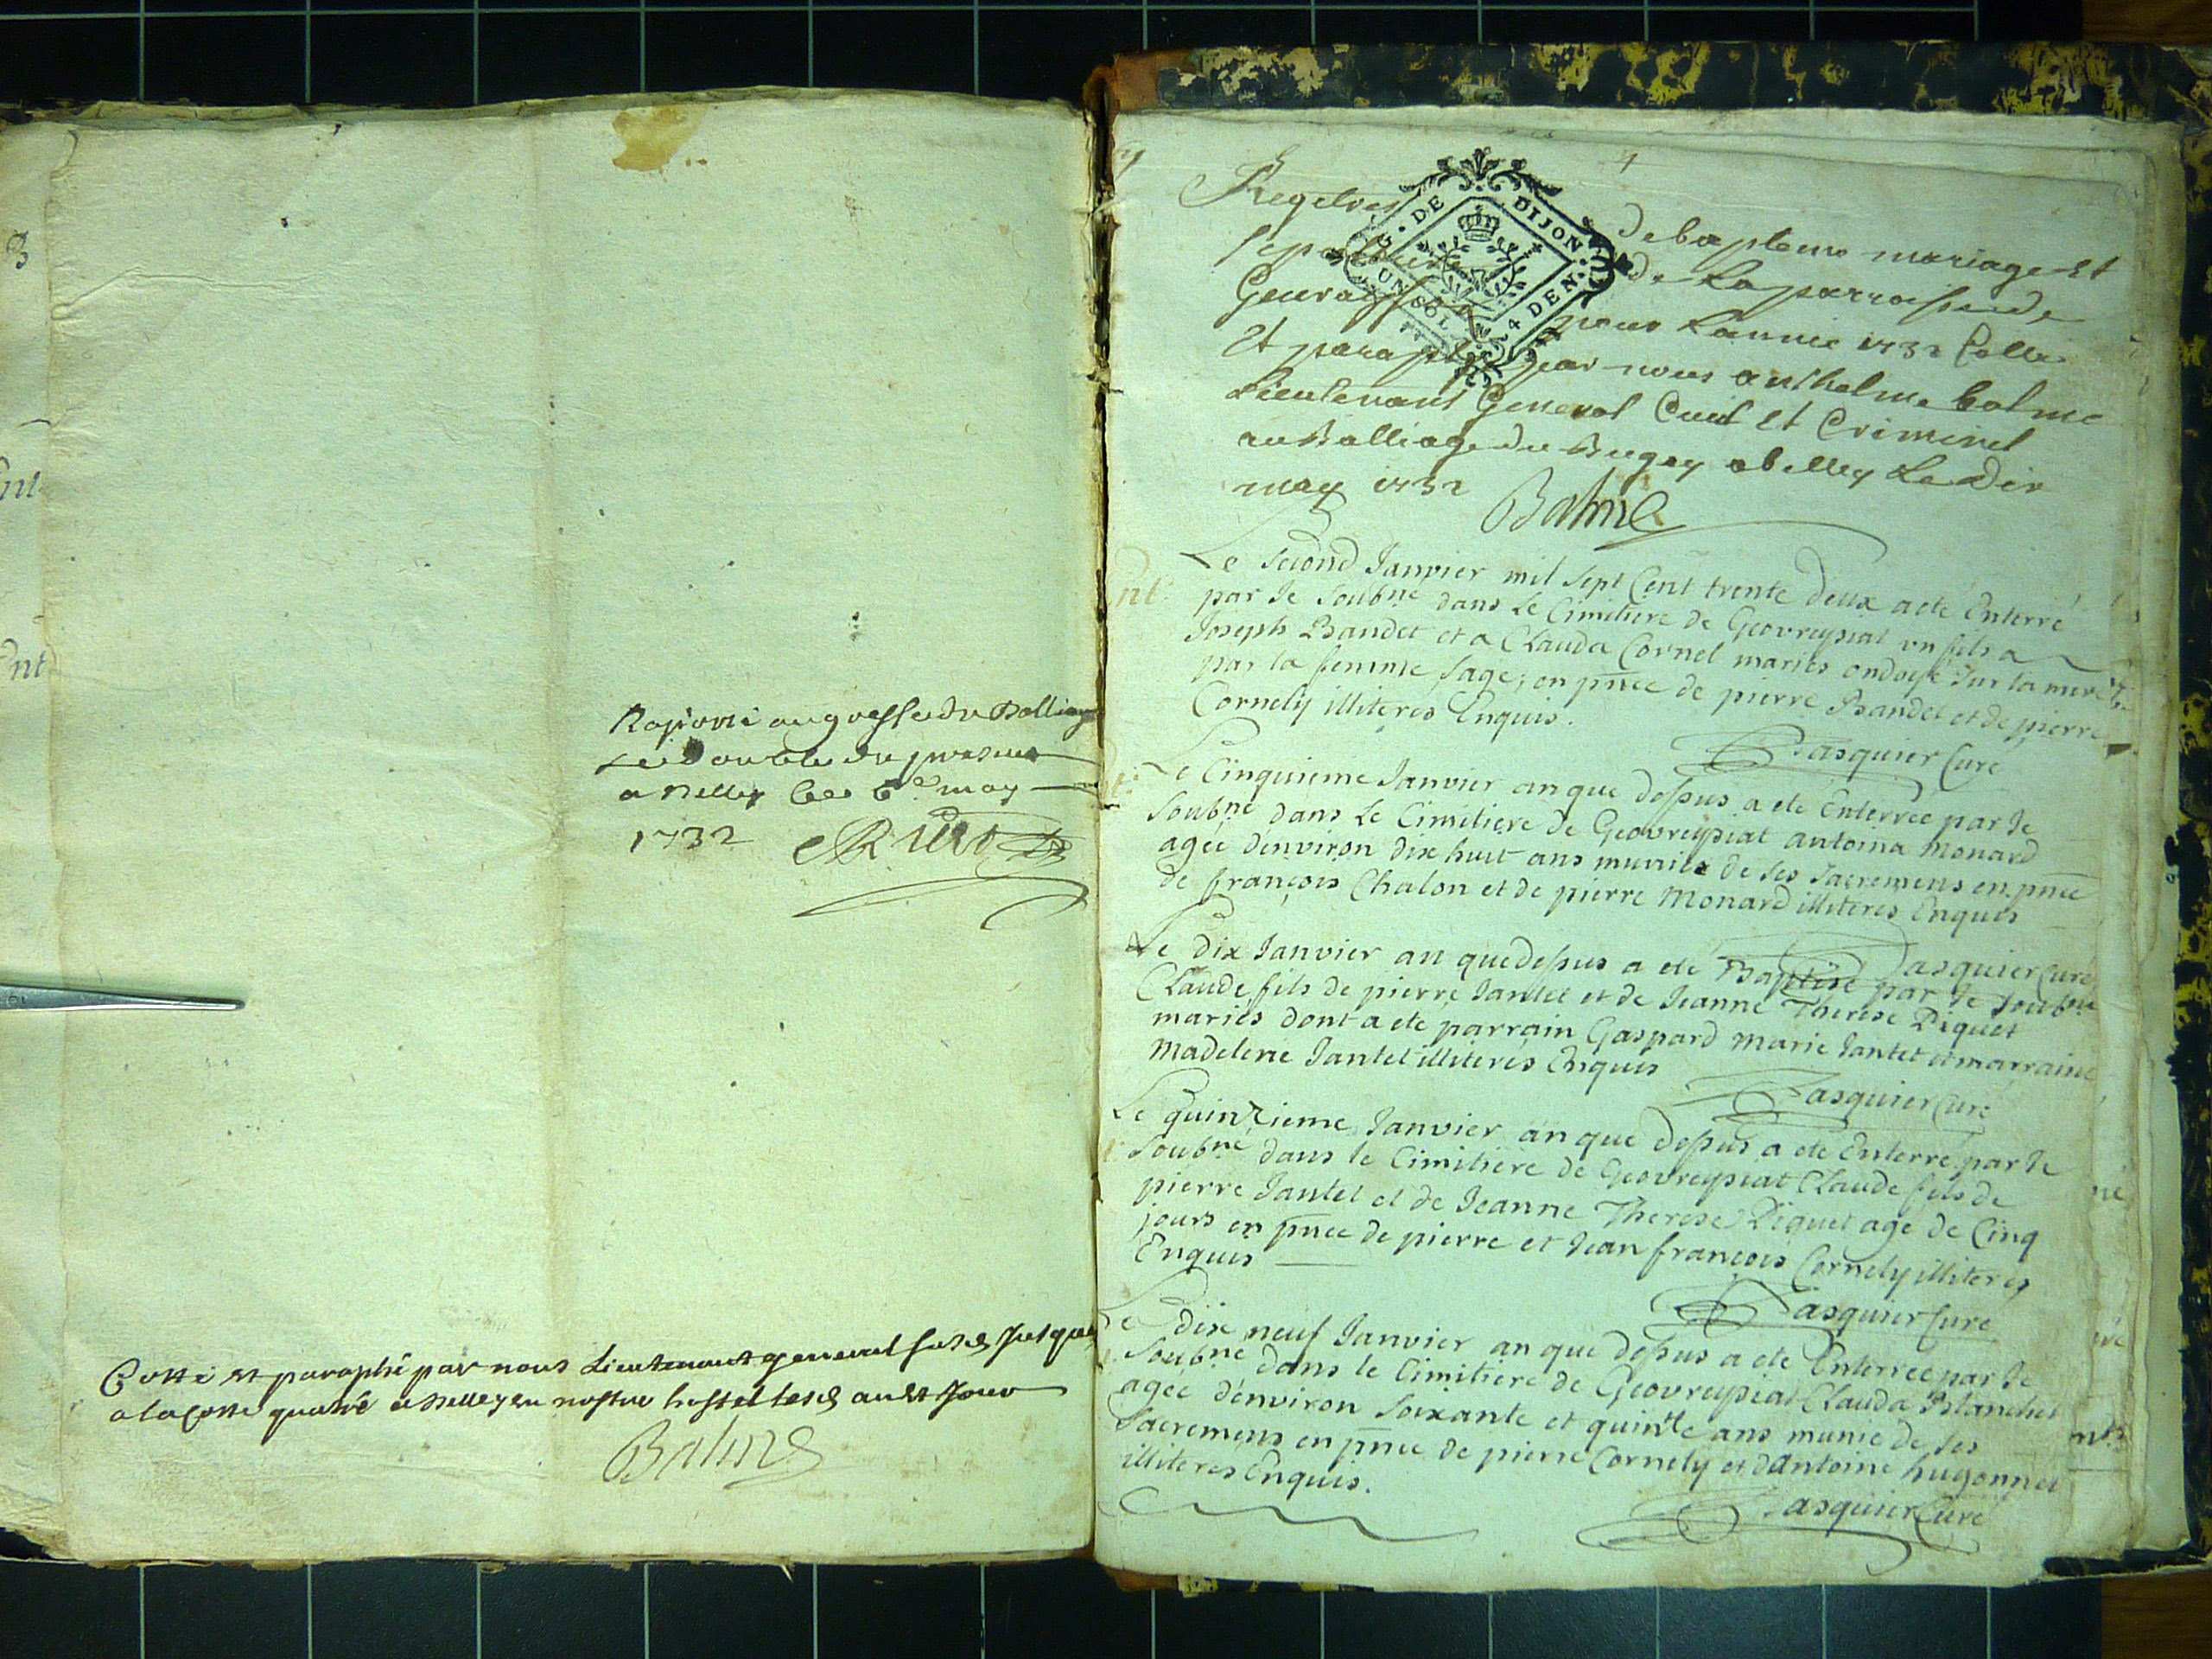 3
Raporté au greffe du Balliage
le double du present
a Belley le 6e may
1732
Cotté et paraphé par nous Lieutenant general susd jusques
a la cotte quatre a Belley en nostre hostel lesd an et jour
Balme
4
G. DE DIJON
UN SOL 4 DEN.
Regetres de bapteme mariage Et
sepulture de La parroisse de
Geuraysia pour Lannée 1732 Cottée
Et paraphé par nous anthelme balme
Lieutenant General Civil Et Criminel
au Balliage du Bugey a belley Le Dix
may 1732
Balme
Le second Janvier mil sept Cent trente deux a eté Enterré
par Je soubné dans Le Cimitiere de Geovreysiat un fils a
Joseph Bandet et a Clauda Cornel mariés ondoyé sur la mere
par la femme sage, en pnce de pierre Bandet et de pierre
Cornely illiteres Enquis.
Pasquier Curé
Le Cinquieme Janvier an que dessus a eté Enterrée par Je
soubné dans Le Cimitiere de Geovreysiat antoina Monard
agée d'environ dix huit ans munie de ses sacremens en pnce
de françois Chalon et de pierre Monard illiteres Enquis
Pasquier Curé
Le dix Janvier an que dessus a eté Baptisé par Je soubné
Claude fils de pierre Jantet et de Jeanne Therese Piquet
mariés dont a eté parrain Gaspard marie Jantet et marraine
Madelene Jantet illiterés Enquis
Pasquier Curé
Le quinzieme Janvier an que dessus a eté Enterré par Je
soubné dans le Cimitiere de Geovreysiat Claude fils de
pierre Jantet et de Jeanne Therese Piquet agé de Cinq
jours en pnce de pierre et Jean françois Cornely illiterés
Enquis
Pasquier Curé
Le dix neuf Janvier an que dessus a eté Enterrée par Je
soubné dans le Cimitiere de Geovreysiat Clauda Blanchet
agée d'environ soixante et quinze ans munie de ses
sacremens en pnce de pierre Cornely et d'Antoine hugonnet
illiteres Enquis.
Pasquier Curé